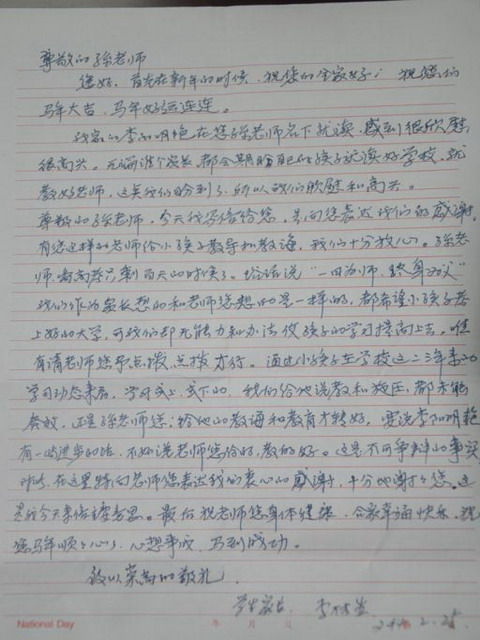 尊敬的孙老师
您好，首先在新年的时候，祝您的全家好；祝您们
马年大吉，马年好运连连。
我家的李明艳在您孙老师名下就读，感到很欣慰
很高兴。无论谁个家长，都会期盼自己的孩子就读好学校，就
教好老师，这点我们盼到了，所以我们欣慰和高兴。
尊敬的孙老师，今天我写信给您，是向您表达我们的感谢，
有您这样的老师给小孩子教导和教诲，我们十分放心。孙老
师，离高考只剩百天的时候了。俗话说“一日为师，终身为父”
我们作为家长想的和老师您想的是一样的，都希望小孩子考
上好的大学，可我们却无能力和办法使孩子的学习提高上去。唯
有请老师您予点拨，点拨才行。通过小孩子在学校这二三年来的
学习动态来看，学习或上，或下的，我们给他说教和施压，都未能
奏效，还是孙老师您，给他的教诲和教育才转好，要说李明艳
有一些进步的话，不如说老师您给好，教的好。这是不可争辩的事实
在这里特向老师您表达我的衷心的感谢，十分地谢谢您。这
是我今天来信主要意思。最后祝老师您身体健康，合家幸福快乐，祝
您马年顺顺心心，心想事成，马到成功。
致以崇高的敬礼！
学生家长：李
2.25
National Day
年 月 日